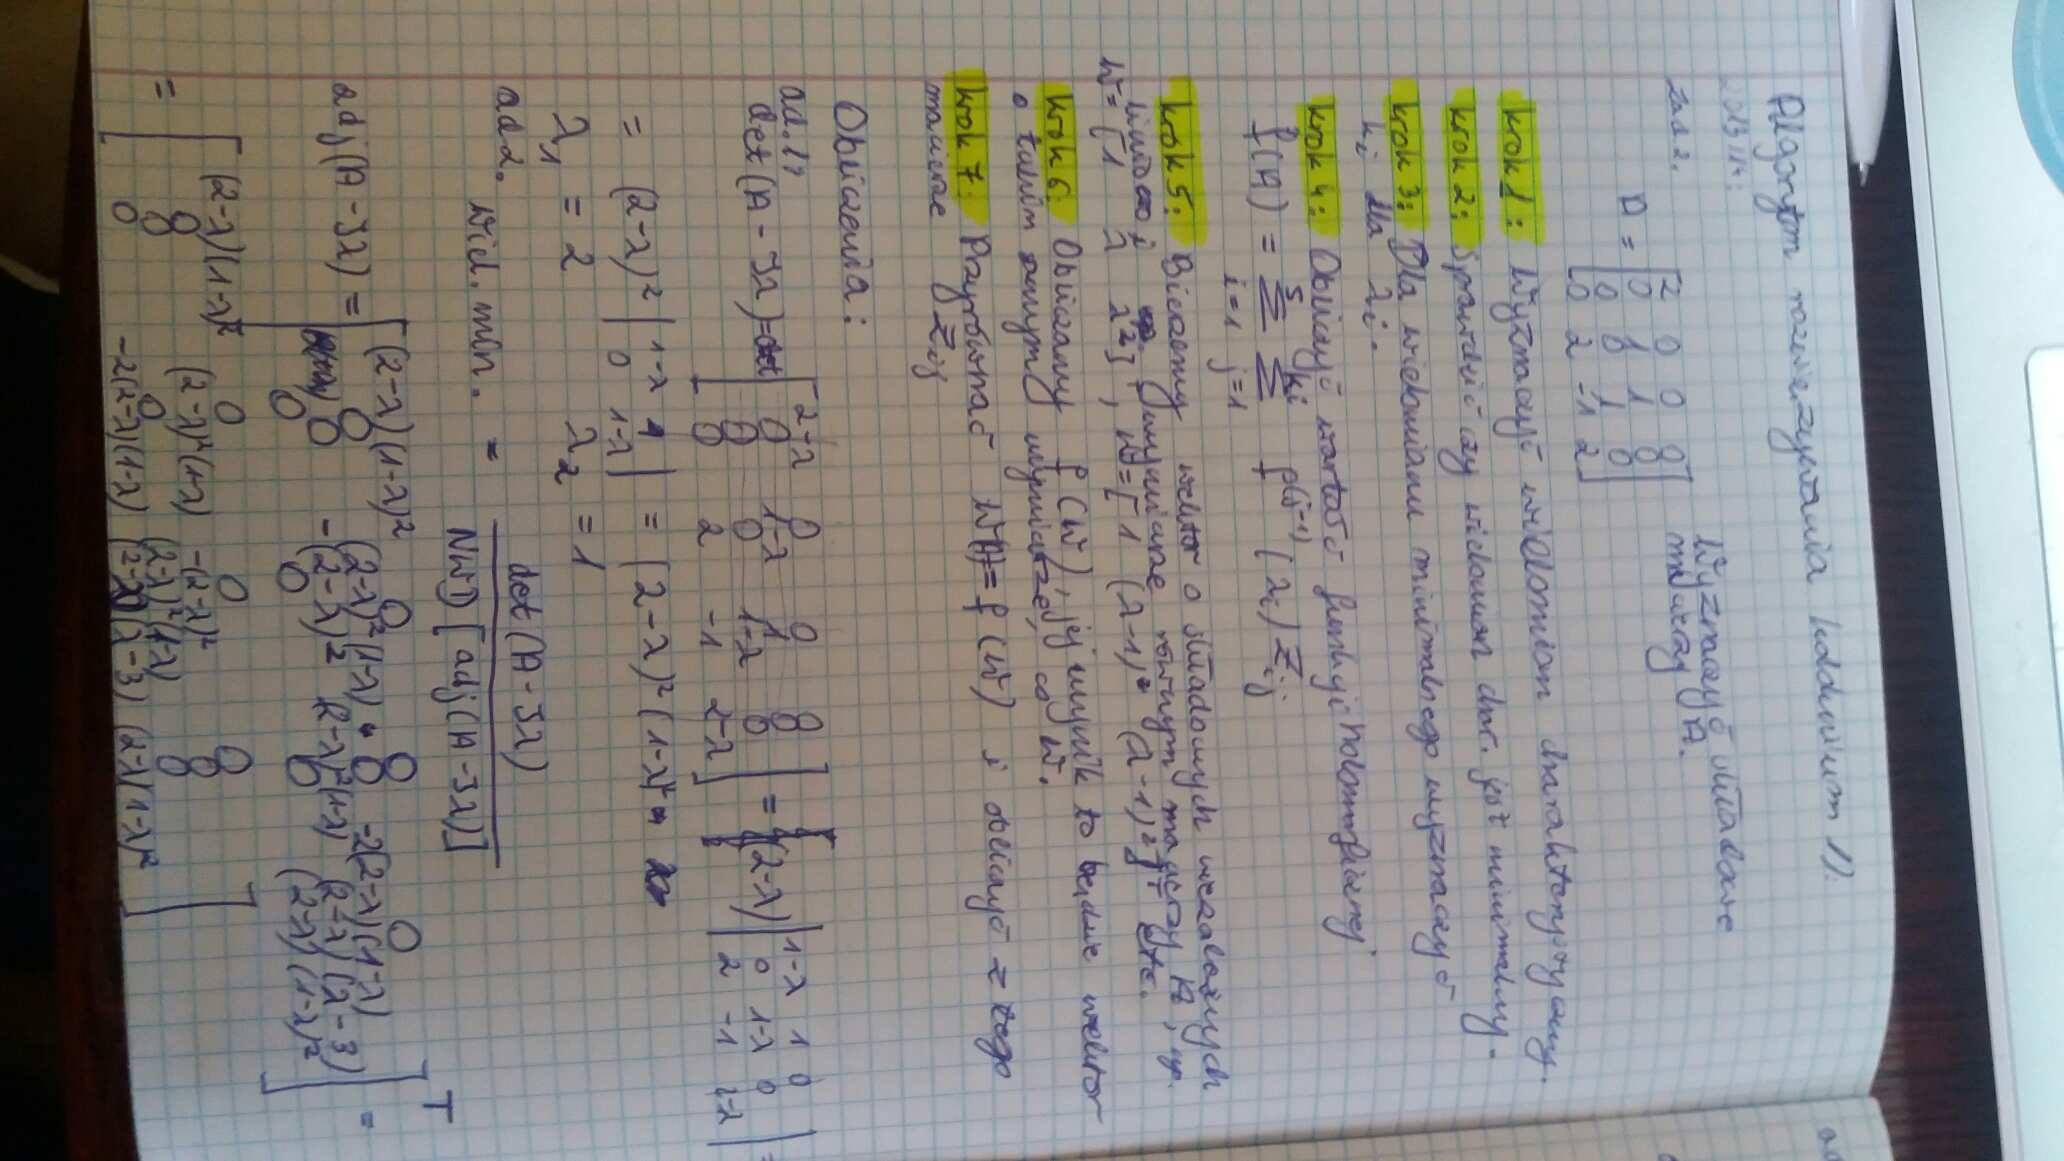 Algorytm rozwiązywania kolokwium 1).
2013/14:
Zad 2.
A = [2 0 0 0
0 1 1 0
0 0 1 0
0 2 -1 2]
Wyznaczyć składowe
macierzy A.
krok 1: Wyznaczyć wielomian charakterystyczny.
krok 2: Sprawdzić czy wielomian char. jest minimalny.
krok 3: Dla wielomianu minimalnego wyznaczyć
ki dla λi.
krok 4: Obliczyć wartość funkcji holomorficznej
f(A) = Σ_{i=1}^{s} Σ_{j=1}^{ki} f^(j-1) (λi) Zij
krok 5: Bierzemy wektor o składowych niezależnych
liniowo i wymiarze równym macierzy A, np.
W = [1 λ λ²]ᵀ, W = [1 (λ-1)² (λ-1)²]ᵀ etc.
krok 6: Obliczamy f(W), jej wynik to będzie wektor
o takim samym wymiarze, co W.
krok 7: Przyrównać W(A)=f(W) i obliczyć z tego
macierze Zij
Obliczenia:
ad.1)
det(A-Iλ)=det [2-λ 0 0 0
0 1-λ 1 0
0 0 1-λ 0
0 2 -1 2-λ] = (2-λ) |1-λ 1 0
0 1-λ 0
2 -1 2-λ| =
= (2-λ)² |1-λ 1
0 1-λ| = (2-λ)²(1-λ)²
λ1 = 2 λ2 = 1
ad 2.
wiel. min. = det(A-Iλ) / NWD[adj(A-Iλ)]
adj(A-Iλ) = [(2-λ)(1-λ)² 0 0 0
0 (2-λ)²(1-λ) 0 -2(2-λ)(1-λ)
0 -(2-λ)² (2-λ)²(1-λ) (2-λ)(λ-3)
0 0 0 (2-λ)(1-λ)²]ᵀ =
= [(2-λ)(1-λ)² 0 0 0
0 (2-λ)²(1-λ) -(2-λ)² 0
0 0 (2-λ)²(1-λ) 0
0 -2(2-λ)(1-λ) (2-λ)(λ-3) (2-λ)(1-λ)²]